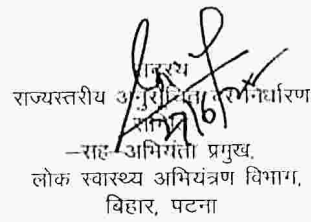 सदस्य
राज्यस्तरीय अनुसूचित दर निर्धारण
समिति
–सह–अभियंता प्रमुख,
लोक स्वास्थ्य अभियंत्रण विभाग,
बिहार, पटना